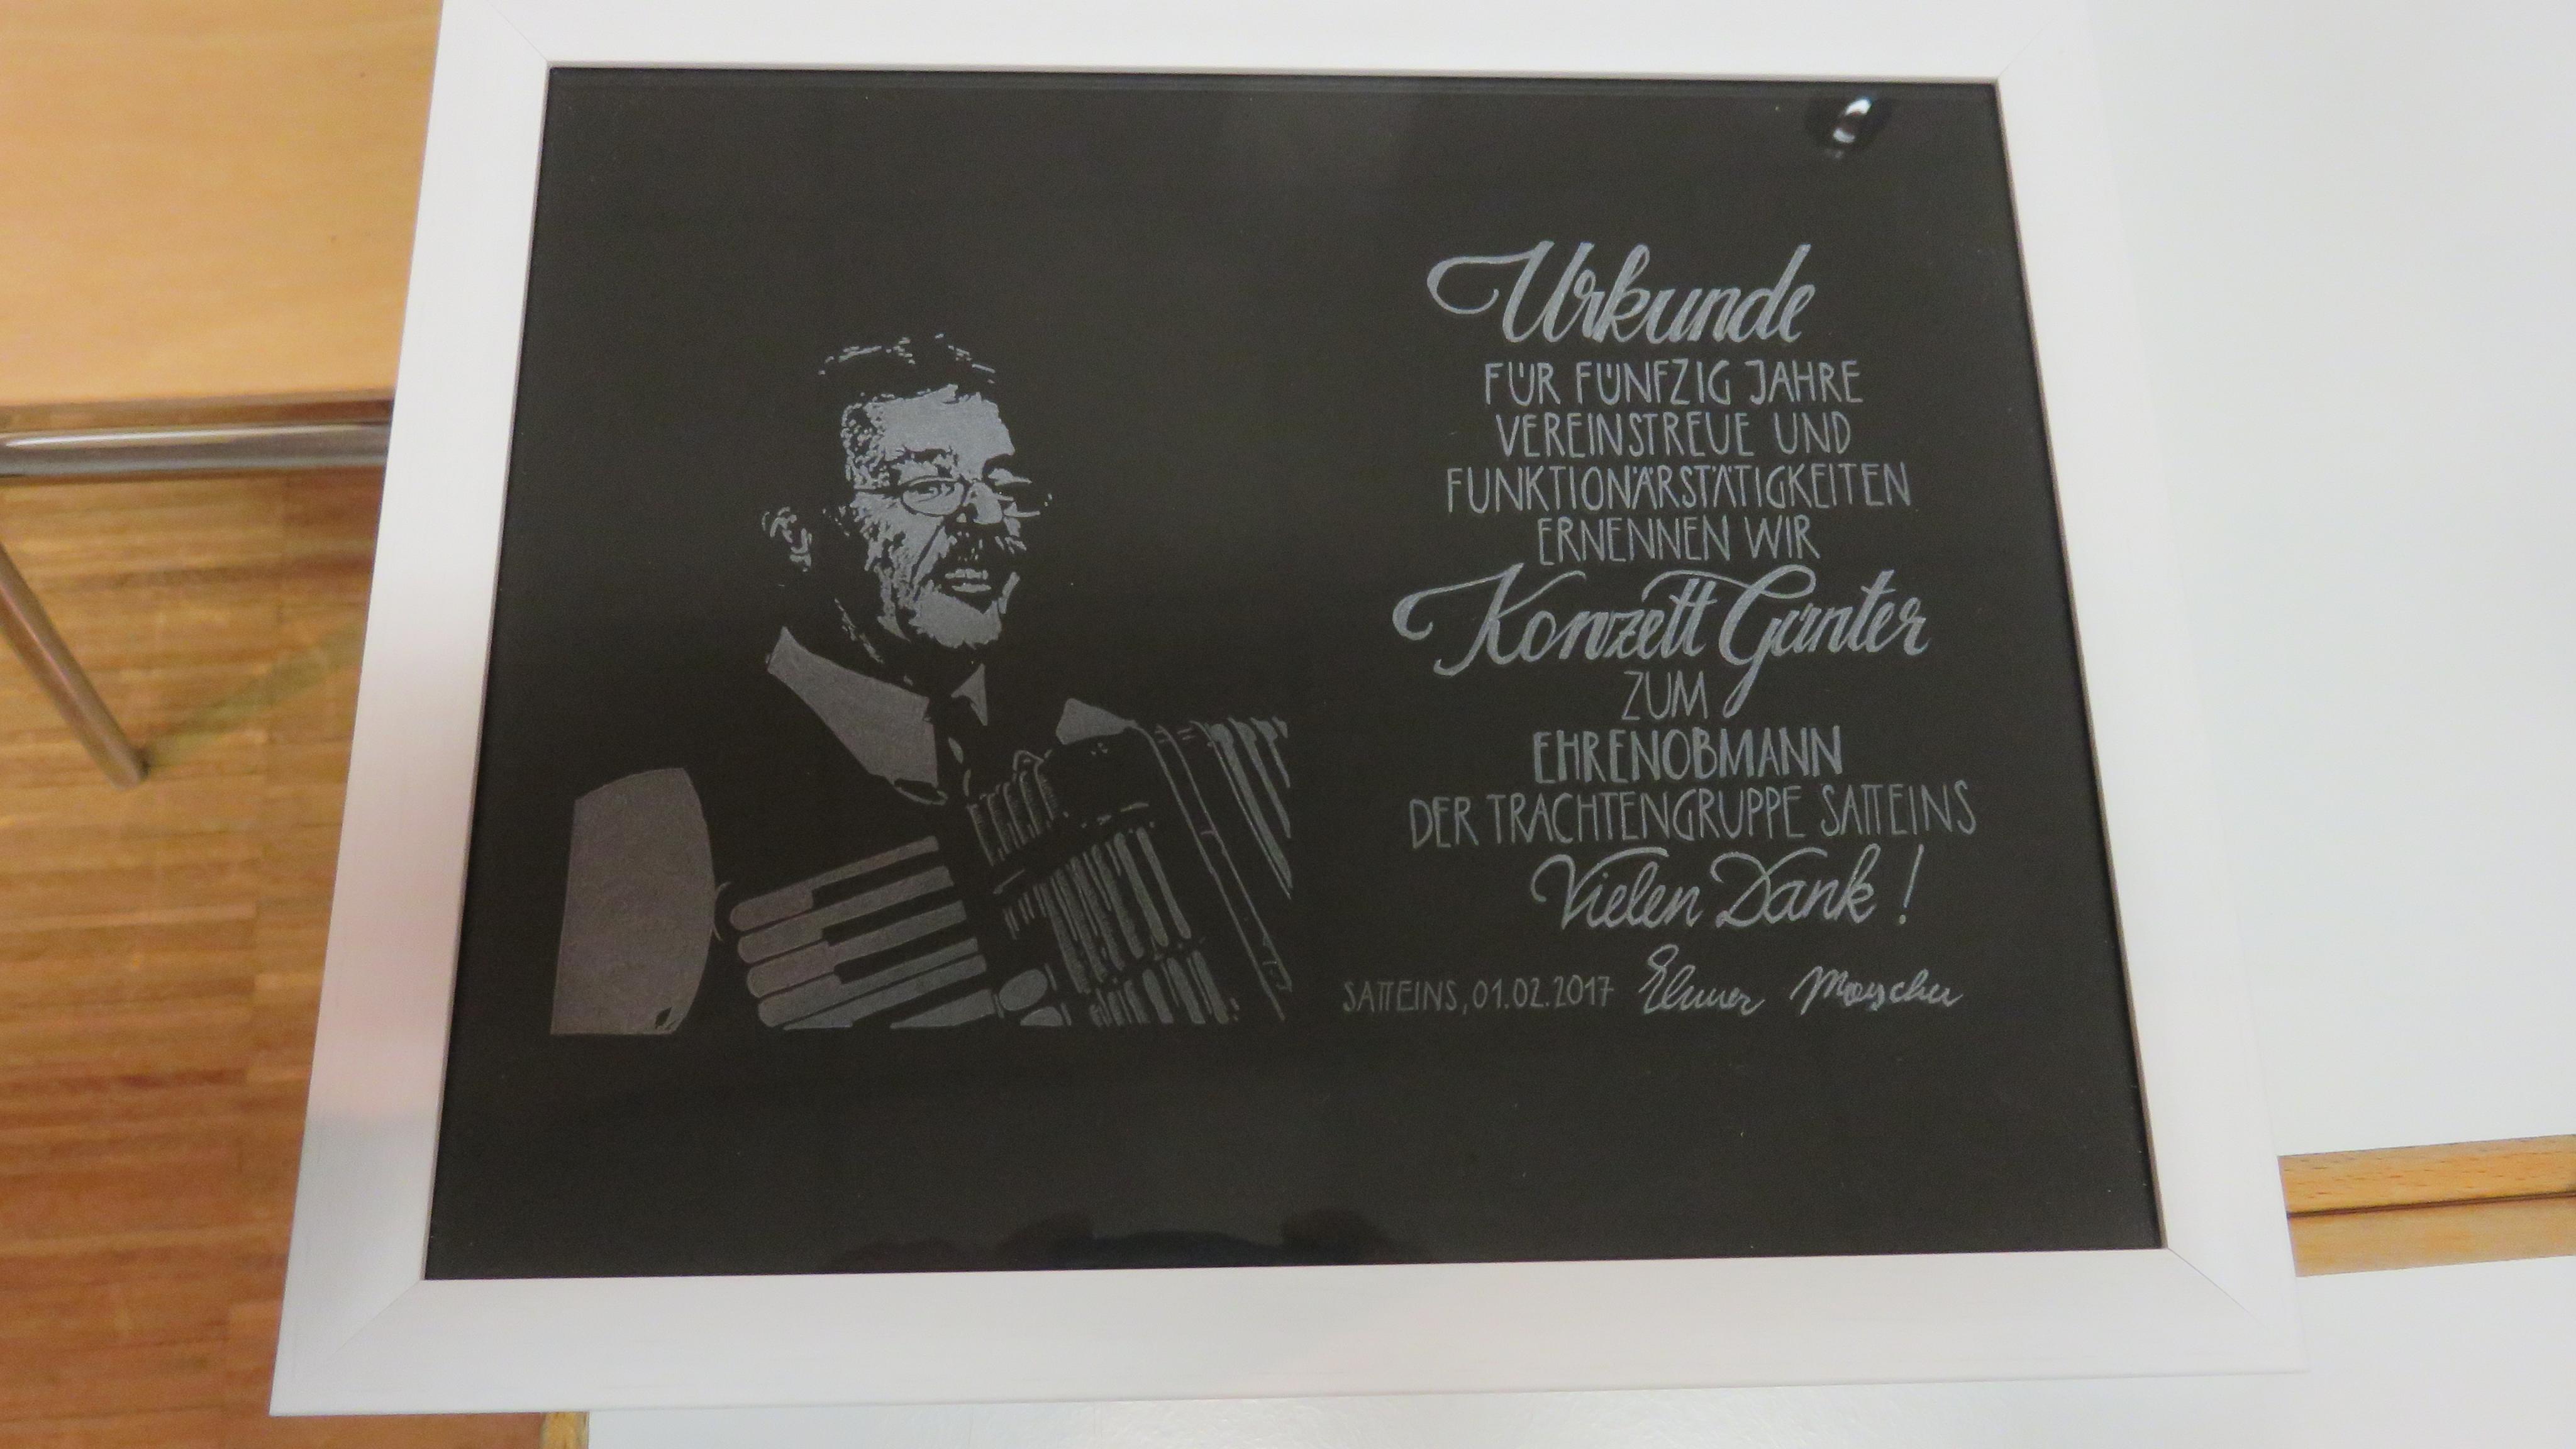 Urkunde
FÜR FÜNFZIG JAHRE
VEREINSTREUE UND
FUNKTIONÄRSTÄTIGKEITEN
ERNENNEN WIR
Konzett Günter
ZUM
EHRENOBMANN
DER TRACHTENGRUPPE SATTEINS
Vielen Dank!
SATTEINS, 01.02.2017 Elmer